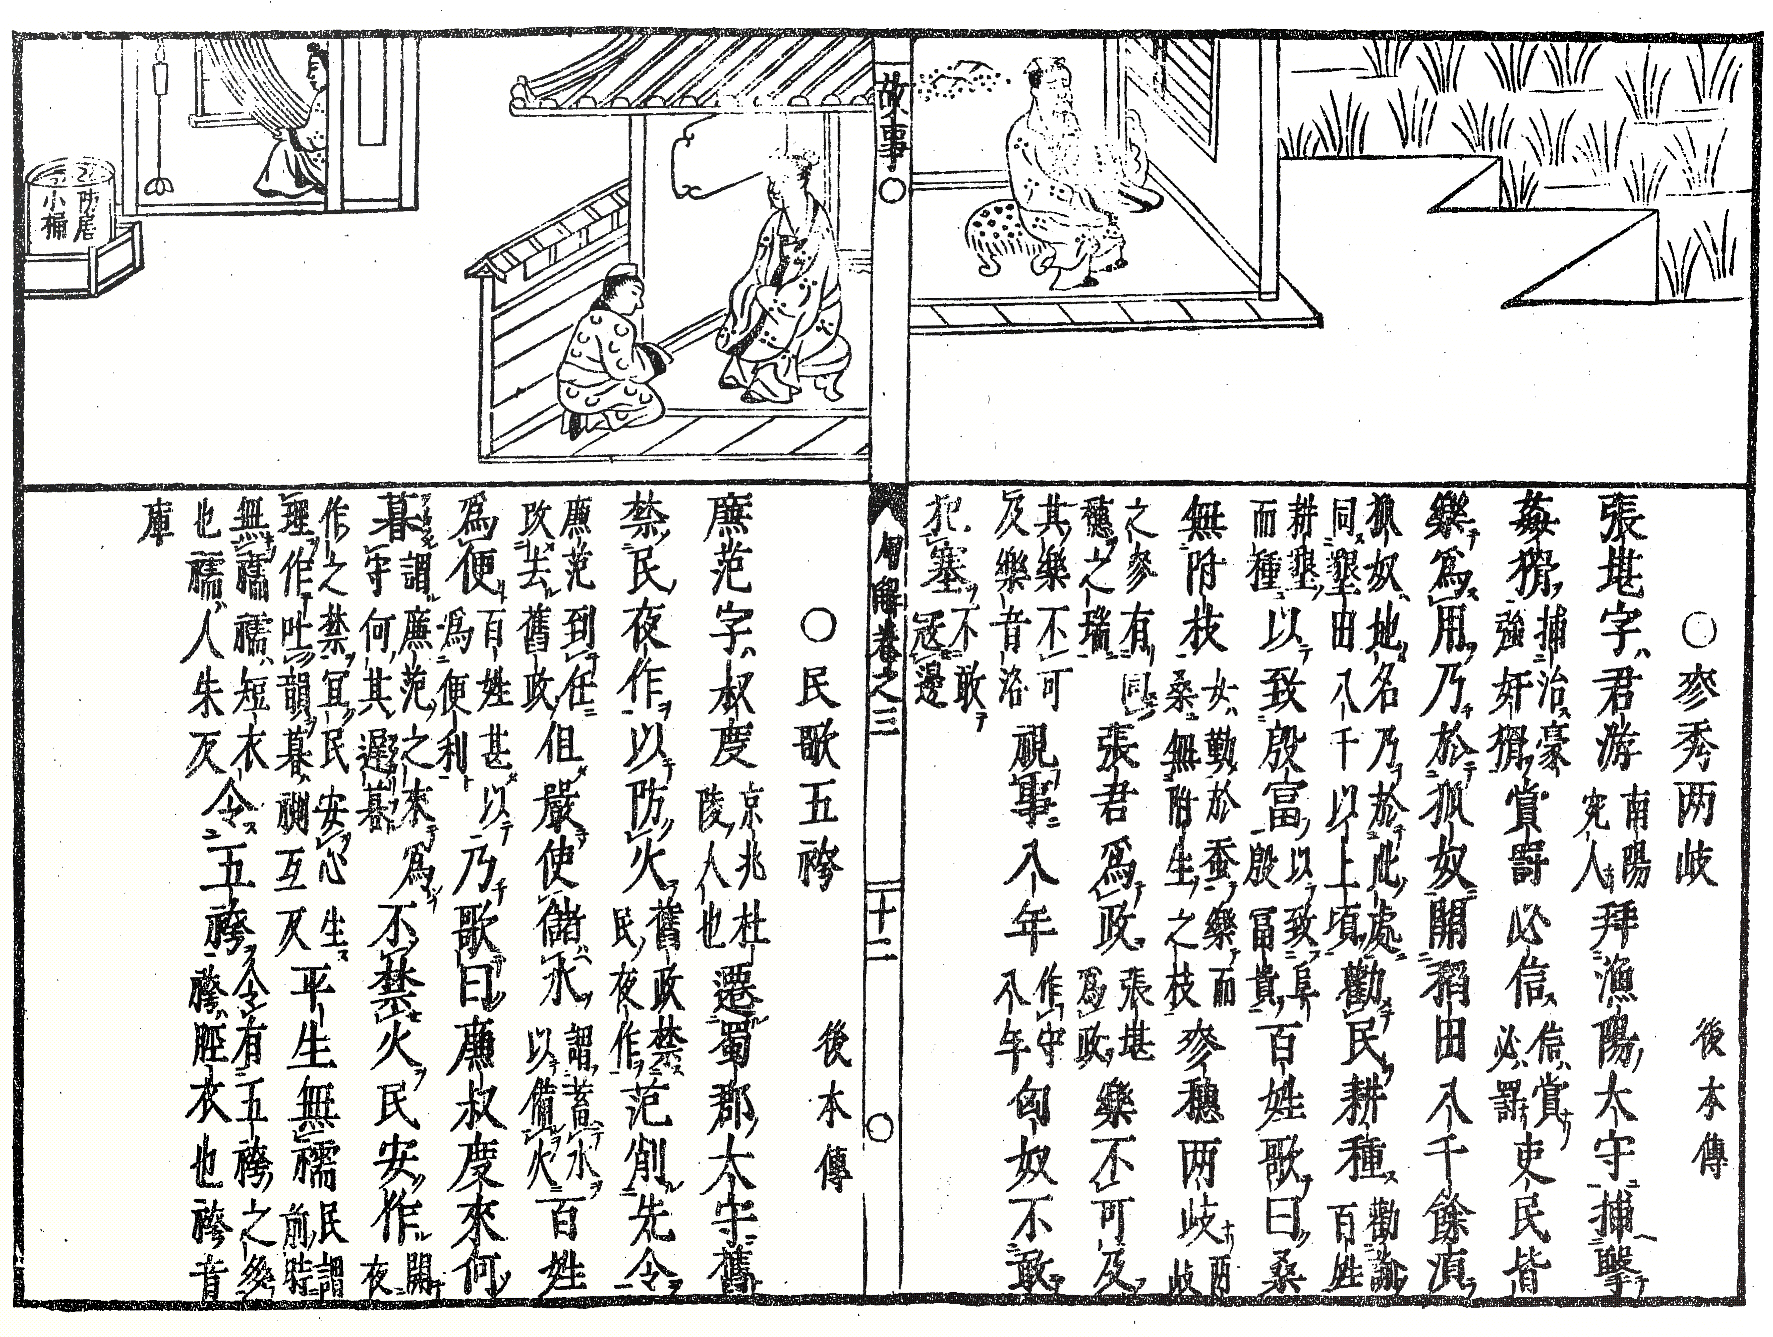 ○麥秀两岐　後本傳
張堪字君游南陽宛人拜漁陽太守捕擊
姦猾捕治豪強奸猾賞罸必信信賞必罪吏民皆
樂爲用乃於狐奴開稻田八千餘頃
狐奴地名乃於此處同墾田八千以上頃勸民耕種勸諭百姓
耕墾而種以致殷富以致阜殷冨貴百姓歌曰桑
無附枝女勤於蚕桑無附生之枝樂而麥穗两岐两岐
之麥有穗之瑞同張君爲政張堪爲政樂不可及
其樂不可及樂音洛視事八年作守八年匈奴不敢
犯塞不敢冦邊
故事○
增解卷之三
十二
○民歌五袴　後本傳
廉范字叔度京兆杜陵人也遷蜀郡太守舊
禁民夜作以防火舊政禁民夜作范削先令
廉范到任改去舊政但嚴使儲水謂蓄水以備火百姓
爲便百姓甚以爲便利乃歌曰廉叔度來何
暮謂廉范之來爲守何其遲暮不禁火民安作開夜
作之禁冝民安心生理作吐韻暮襦互叐平生無襦民謂前時
無襦襦短衣也襦人朱叐今五袴今有五袴之多袴脛衣也袴音
庫
防虞
小桶